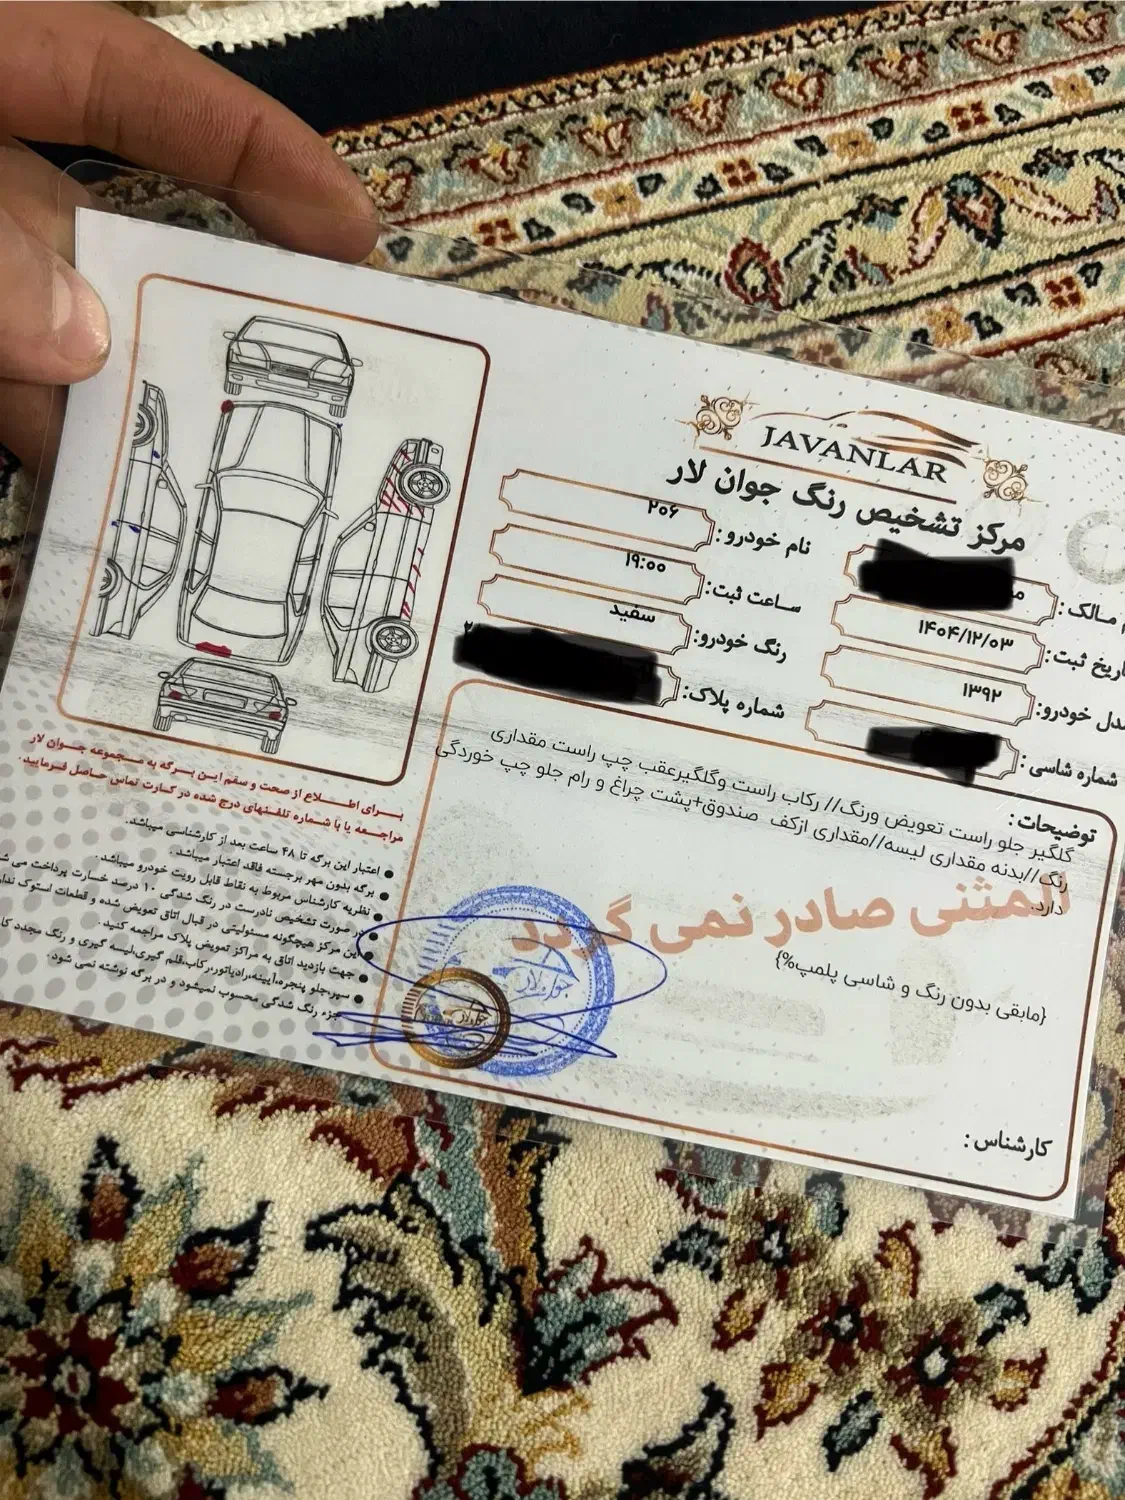 JAVANLAR
مرکز تشخیص رنگ جوان لار
مالک:
نام خودرو: ۲۰۶
تاریخ ثبت: ۱۴۰۴/۱۲/۰۳
ساعت ثبت: ۱۹:۰۰
مدل خودرو: ۱۳۹۲
رنگ خودرو: سفید
شماره شاسی:
شماره پلاک:
توضیحات:
گلگیر جلو راست تعویض ورنگ// رکاب راست وگلگیرعقب چپ راست مقداری
رنگ//بدنه مقداری لیسه//مقداری ازکف صندوق+پشت چراغ و رام جلو چپ خوردگی
دارد.
المثنی صادر نمی گردد
{مابقی بدون رنگ و شاسی پلمپ%}
کارشناس:
برای اطلاع از صحت و سقم این برگه به مجموعه جوان لار
مراجعه یا با شماره تلفنهای درج شده در کارت تماس حاصل فرمایید.
اعتبار این برگه تا ۴۸ ساعت بعد از کارشناسی میباشد.
برگه بدون مهر برجسته فاقد اعتبار میباشد.
نظریه کارشناس مربوط به نقاط قابل رویت خودرو میباشد.
در صورت تشخیص نادرست در رنگ شدگی ۱۰ درصد خسارت پرداخت می
این مرکز هیچگونه مسئولیتی در قبال اتاق تعویض شده و قطعات استوک
جهت بازدید اتاق به مراکز تعویض پلاک مراجعه کنید.
سپر،جلو پنجره،آیینه،رادیاتور،رکاب،قلم گیری،لیسه گیری و رنگ مجدد
جزء رنگ شدگی محسوب نمیشود و در برگه نوشته نمی شود.
جوان لار